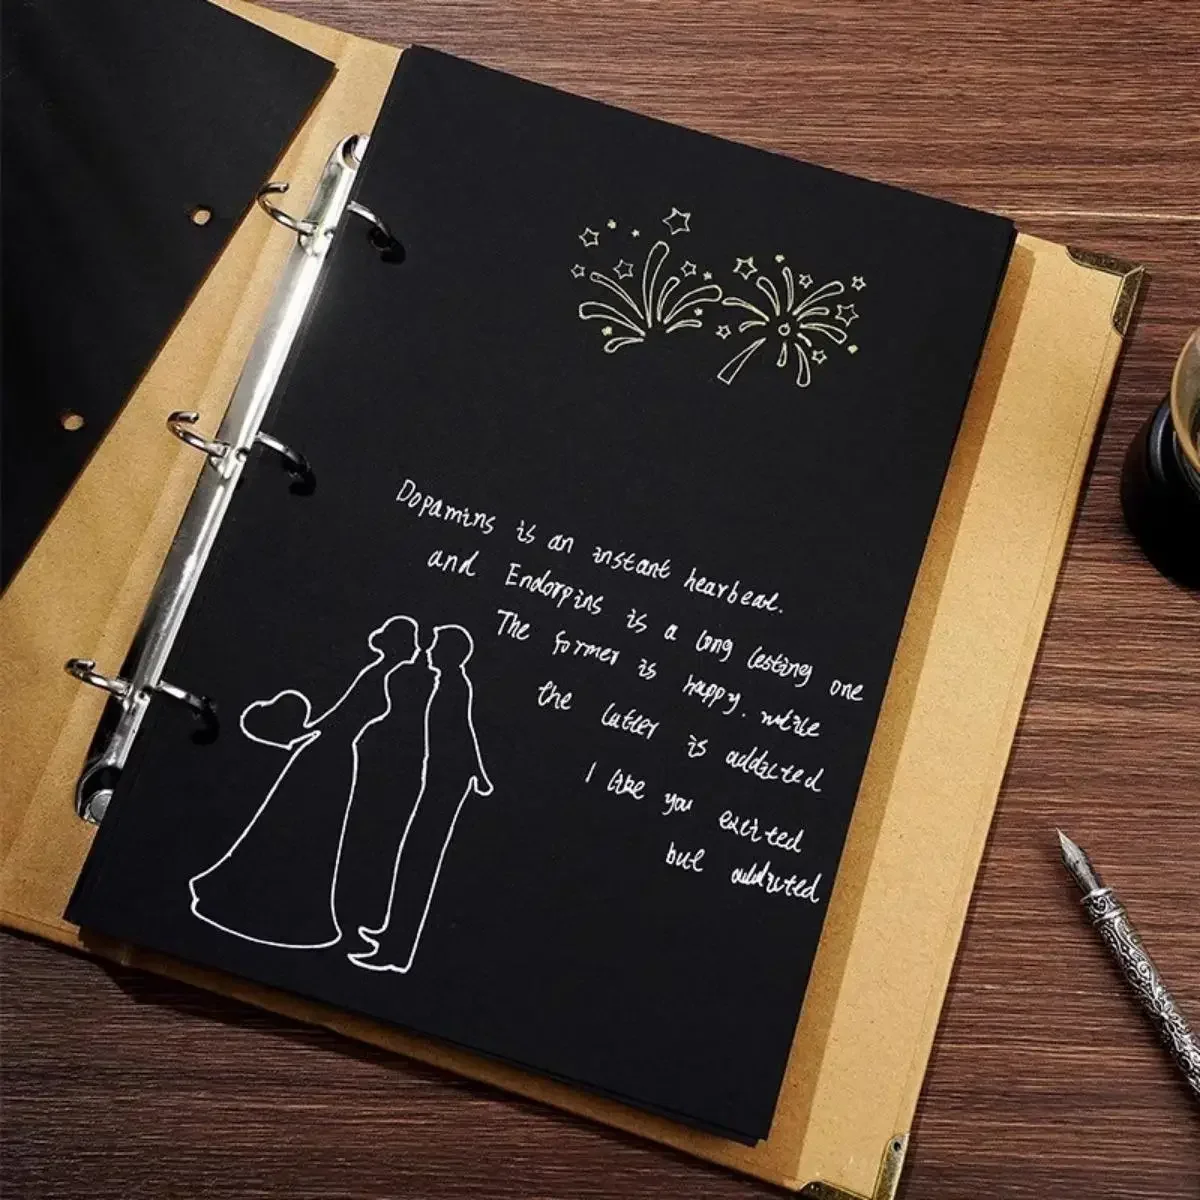 Dopamins is an instant hearbeat.
and Endorpins is a long lesting one
The former is happy. while
the latter is addicted
I like you excited
but addicted